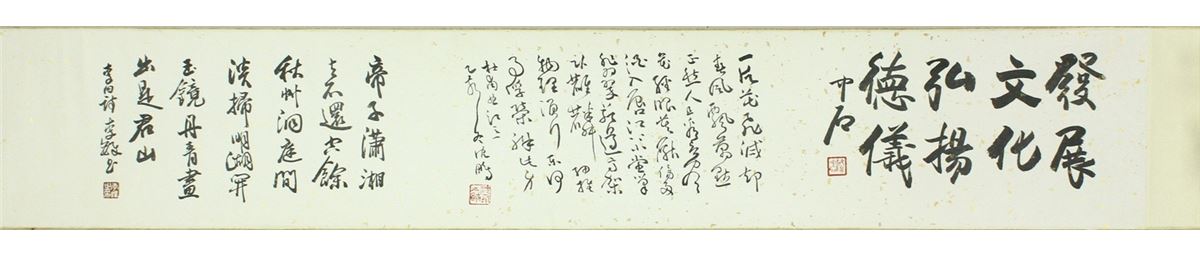 發展
文化
弘揚
德儀
中石
一片花飛減却
春風飄萬點
正愁人且看欲盡
花經眼莫厭傷多
酒入唇江上小堂巢
翡翠苑邊高塚
臥麒麟細推
物理須行樂何
用浮榮絆此身
杜甫曲江
乙亥冬沈鵬
帝子瀟湘
去不還空餘
秋艸洞庭間
淡掃明湖開
玉鏡丹青畫
出是君山
李白詩李鐸書